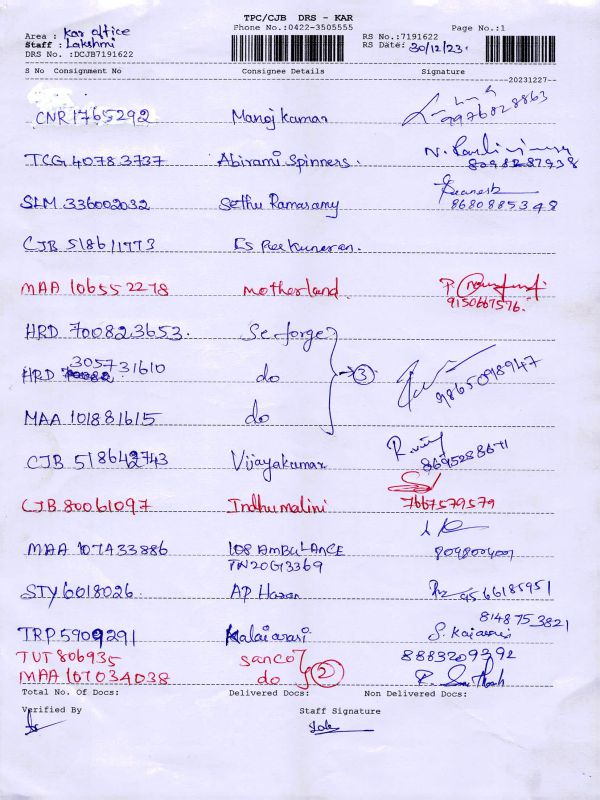 TPC/CJB DRS - KAR
Phone No.:0422-3505555
Page No.:1
Area : Kar office
RS No.:7191622
Staff : Lakshmi
RS Date: 30/12/23.
DRS No. :DCJB7191622
S No Consignment No Consignee Details Signature
20231227--
CNR 1765292 Manoj kumar 9976828863
TCG 40783737 Abirami Spinners. 8098287938
SLM 336002032 Sethu Ramasamy 8680885348
CJB 518611773
MAA 106552278 Motherland. 9150667576.
HRD 700823653. Se-forge
HRD 305731610 do 3 9865098947
MAA 101881615 do
CJB 518642743 Vijayakumar 8695288671
CJB 80061097 Indhumalini 7667579579
MAA 107433886 108 AMBULANCE
TN20G3369
STY 6018026 AP Hasan 9566185951
TRP 5909291 Kalaiarasi 8148753821
TUT 806935 sanco 8883209392
MAA 107034038 do 2
Total No. Of Docs: Delivered Docs: Non Delivered Docs:
Verified By Staff Signature